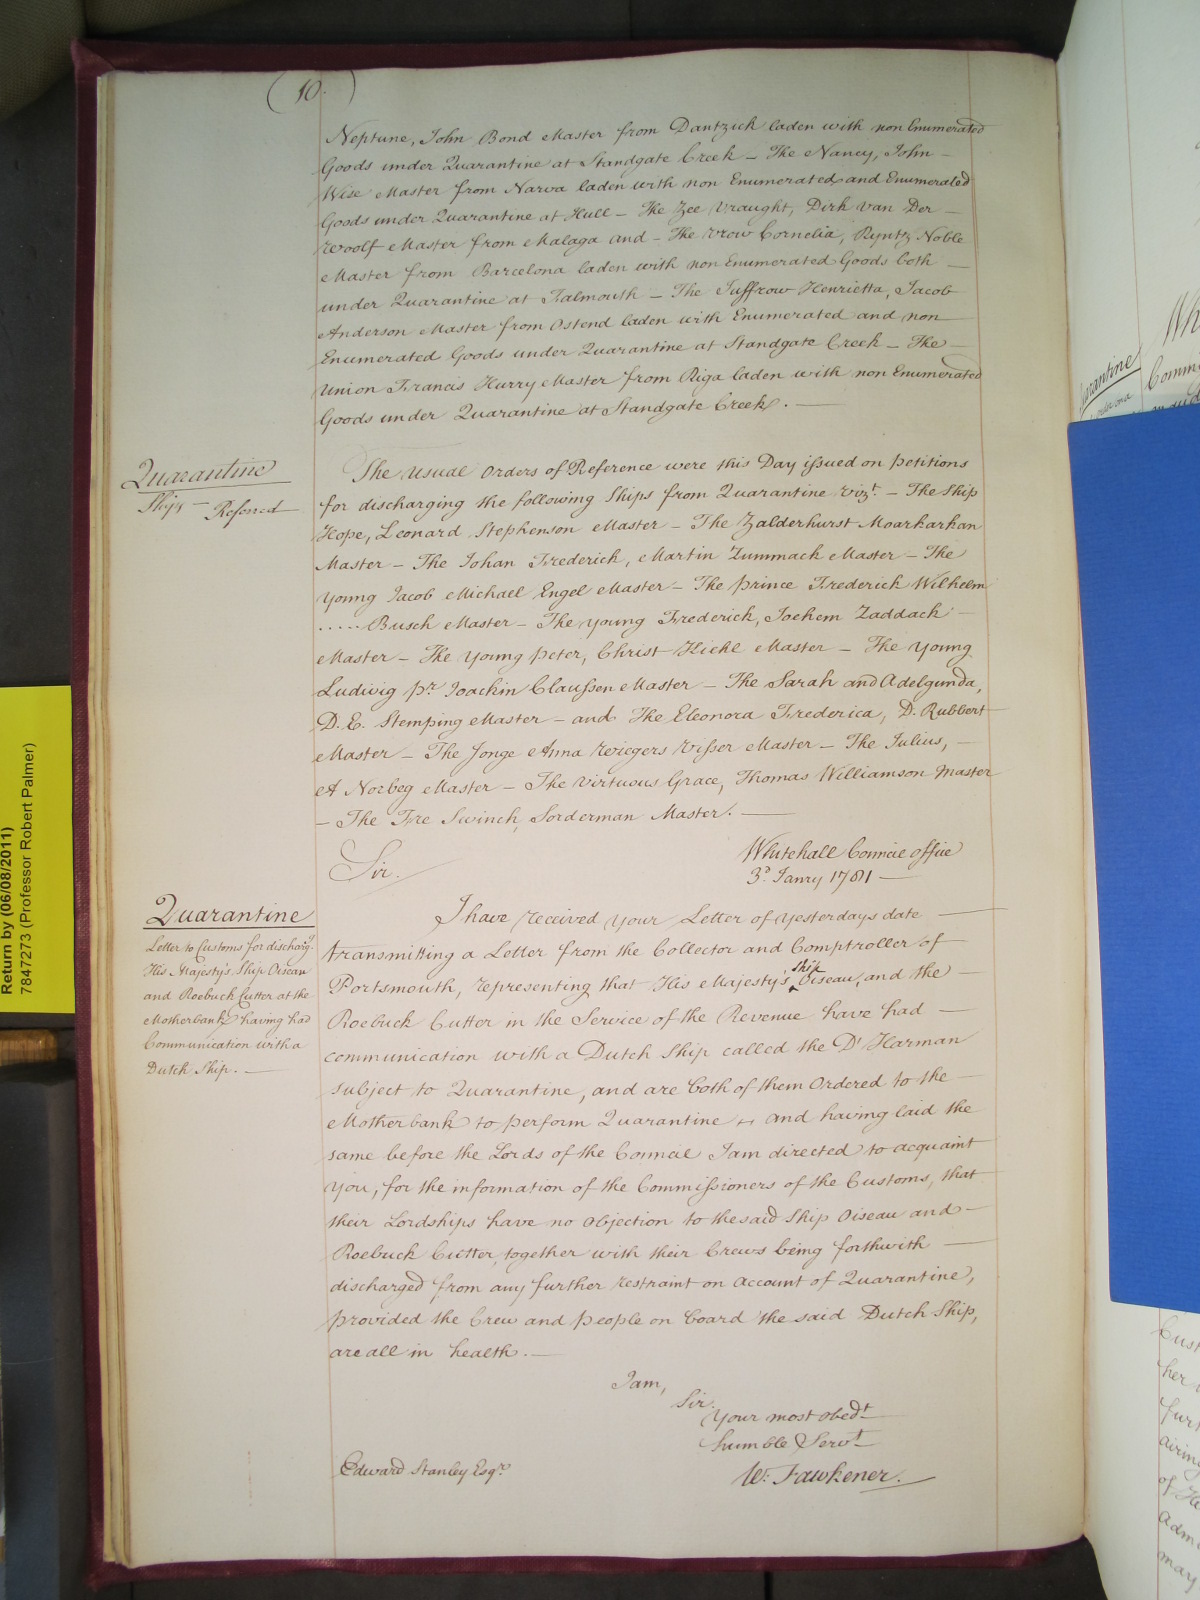 (10.)
Neptune, John Bond Master from Dantzick laden with non Enumerated
Goods under Quarantine at Standgate Creek – The Nancy, John –
Wise Master from Narva laden with non Enumerated and Enumerated
Goods under Quarantine at Hull – The Zee Vraught, Dirk Van Der –
Woolf Master from Malaga and – The Vrow Cornelia, Ryntz Noble
Master from Barcelona laden with non Enumerated Goods both –
under Quarantine at Falmouth – The Juffrow Henrietta, Jacob
Anderson Master from Ostend laden with Enumerated and non
Enumerated Goods under Quarantine at Standgate Creek – The –
Union Francis Hurry Master from Riga laden with non Enumerated
Goods under Quarantine at Standgate Creek. –
Quarantine
Ships – Referred
The Usual Orders of Reference were this Day issued on petitions
for discharging the following Ships from Quarantine vizt. – The Ship
Hope, Leonard Stephenson Master – The Zalderhurst Moarkarkan
Master – The Johan Frederick, Martin Zummack Master – The
Young Jacob Michael Engel Master – The Prince Frederick Wilhelm
..... Busch Master – The young Frederick, Jochem Zaddach –
Master – The Young Peter, Christ Hichl Master – The Young
Ludwig pr. Joackin Claussen Master – The Sarah and Adelgunda,
D. E. Stemping Master – and The Eleonora Frederica, D. Rubbert
Master – The Jonge Anna Wiegers Visser Master – The Julius, –
A Norbeg Master – The Virtuous Grace, Thomas Williamson Master
– The Fre Swinch, Sorderman Master. –
Whitehall Council Office
Sir.
3d. Janry 1781 –
Quarantine
Letter to Customs for discharg.g
His Majesty's Ship Oiseau
and Roebuck Cutter at the
Motherbank, having had
Communication with a
Dutch Ship. –
I have received your Letter of Yesterdays date –
transmitting a Letter from the Collector and Comptroller of
Portsmouth, representing that His Majesty's Ship Oiseau, and the –
Roebuck Cutter in the Service of the Revenue have had –
communication with a Dutch Ship called the Dl Harman
subject to Quarantine, and are both of them Ordered to the –
Motherbank to perform Quarantine and having laid the
same before the Lords of the Council I am directed to acquaint
You, for the information of the Commissioners of the Customs, that
their Lordships have no Objection to the said Ship Oiseau and –
Roebuck Cutter, together with their Crews being forthwith –
discharged from any further restraint on Account of Quarantine,
provided the Crew and people on board the said Dutch Ship,
are all in health. –
I am,
Sir.
Your most obedt
humble Servt
Edward Stanley Esqre.
W. Fawkener.
Return by (06/08/2011)
7847273 (Professor Robert Palmer)